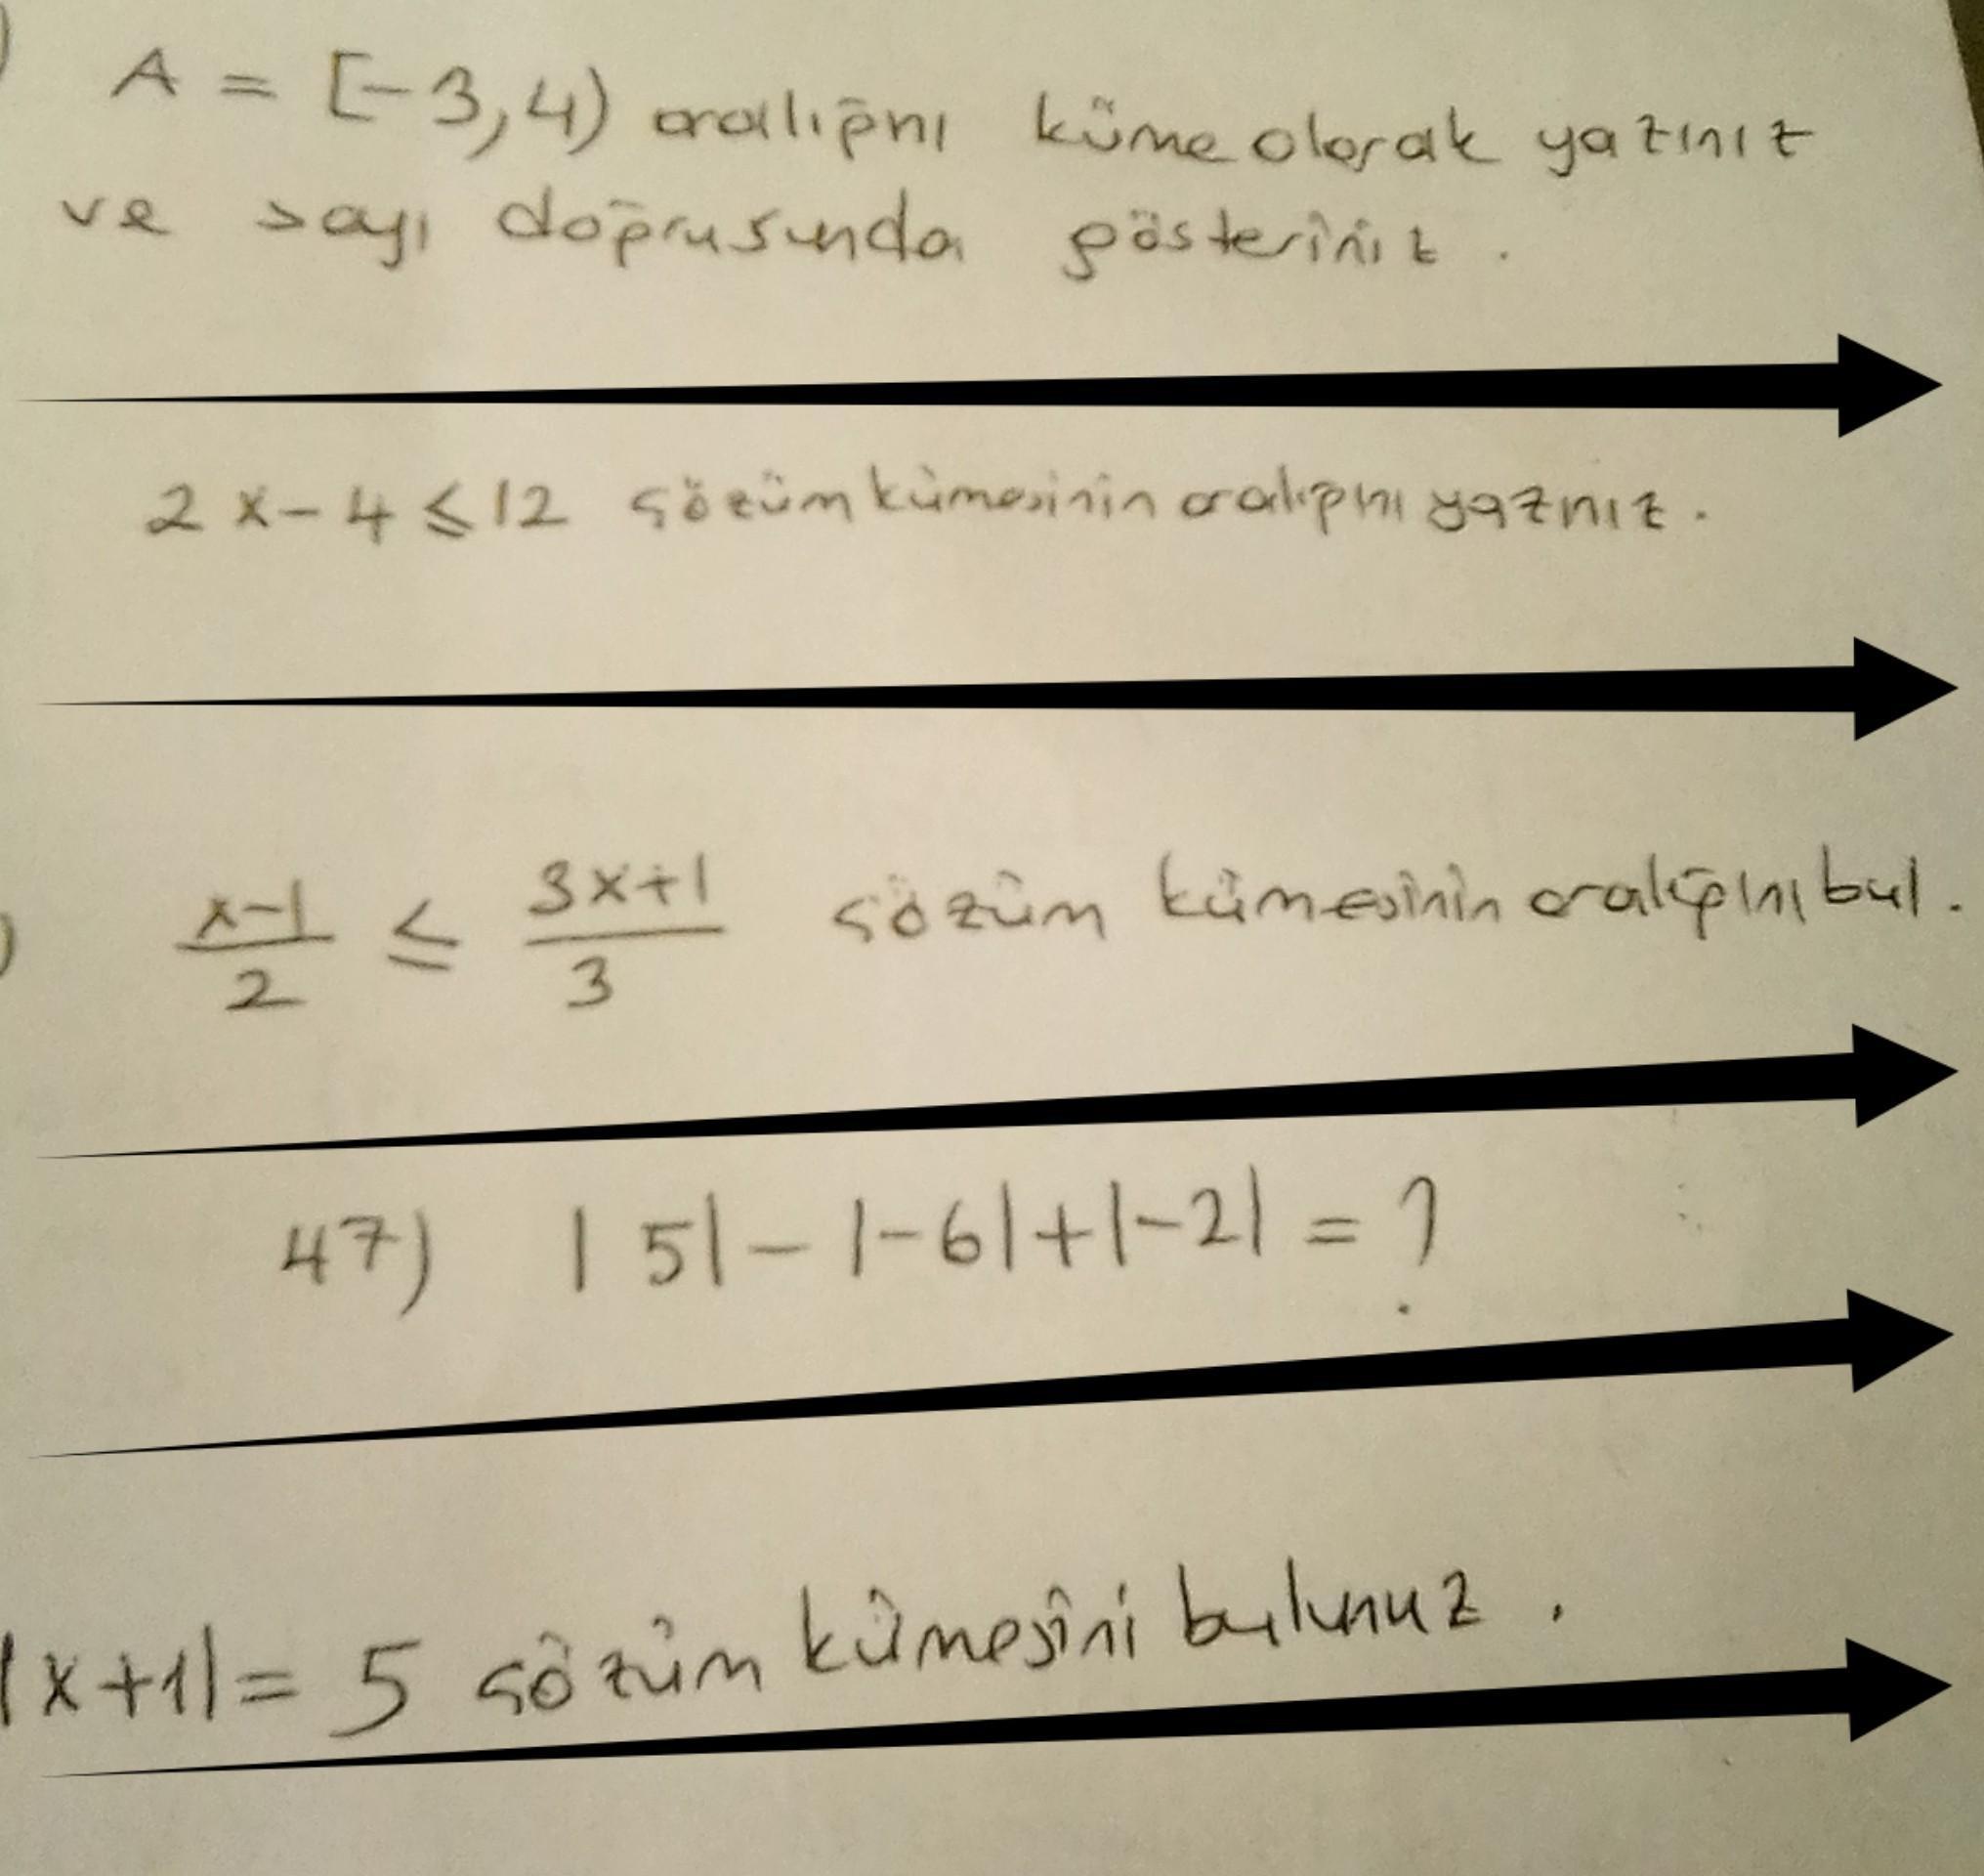 A = [-3,4) aralığını küme olarak yazınız
ve sayı doğrusunda gösteriniz.
2x-4≤12 çözüm kümesinin aralığını yazınız.
) x-1/2 ≤ 3x+1/3 çözüm kümesinin aralığını bul.
47) |5|-|-6|+|-2| = ?
|x+1|= 5 çözüm kümesini bulunuz.